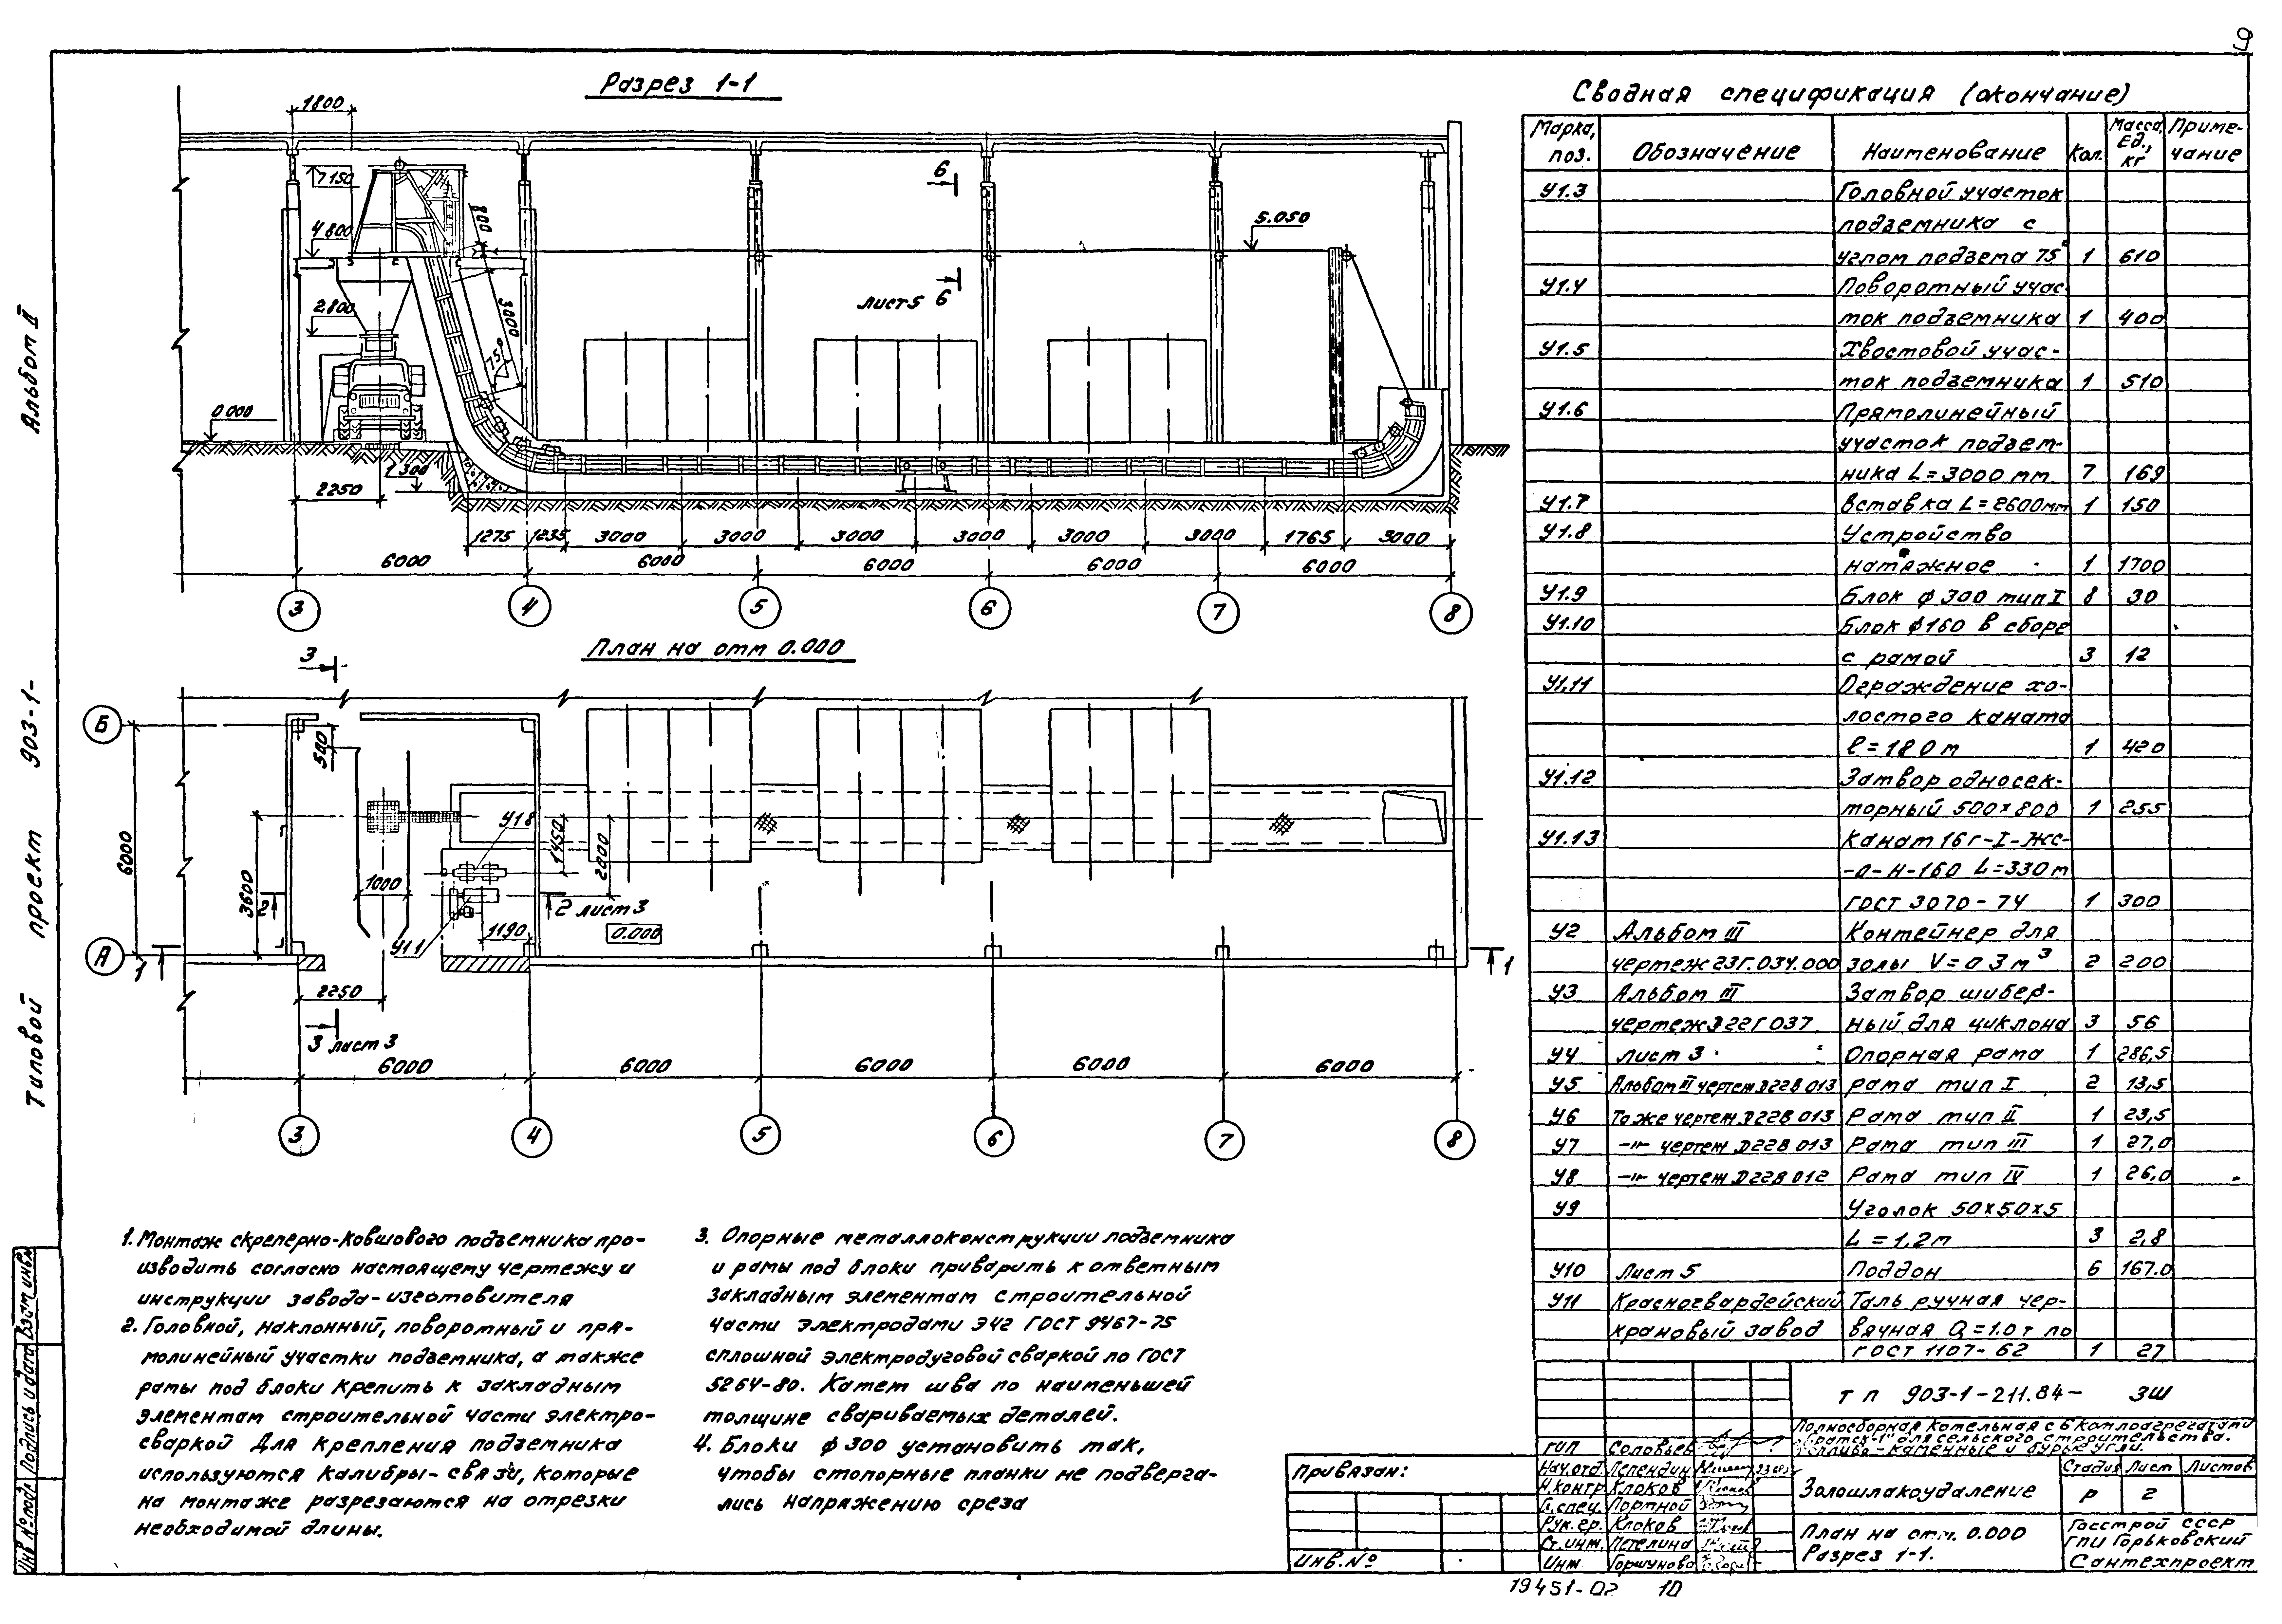 9
Альбом II
Типовой проект 903-1-
Разрез 1-1
1800
7150
4800
2800
0.000
800
3000
75°
6
6
лист 5
5.050
2250
1275
1235
3000
3000
3000
3000
3000
3000
1765
3000
6000
6000
6000
6000
6000
3
4
5
6
7
8
План на отм 0.000
3
Б
А
500
6000
3600
1000
У1.8
У1.1
1450
2000
1190
2
2 лист 3
0.000
1
1
2250
3 лист 3
6000
6000
6000
6000
6000
3
4
5
6
7
8
1. Монтаж скреперно-ковшового подъемника про-
изводить согласно настоящему чертежу и
инструкции завода-изготовителя
2. Головной, наклонный, поворотный и пря-
молинейный участки подъемника, а также
рамы под блоки крепить к закладным
элементам строительной части электро-
сваркой Для крепления подъемника
используются калибры-связи, которые
на монтаже разрезаются на отрезки
необходимой длины.
3. Опорные металлоконструкции подъемника
и рамы под блоки приварить к ответным
закладным элементам строительной
части электродами Э42 ГОСТ 9467-75
сплошной электродуговой сваркой по ГОСТ
5264-80. Катет шва по наименьшей
толщине свариваемых деталей.
4. Блоки ф 300 установить так,
чтобы стопорные планки не подверга-
лись напряжению среза
Сводная спецификация (окончание)
Марка, поз. Обозначение Наименование Кол. Масса, Ед., кг Приме-чание
У1.3 Головной участок
подъемника с
углом подъема 75° 1 610
У1.4 Поворотный учас-
ток подъемника 1 400
У1.5 Хвостовой учас-
ток подъемника 1 510
У1.6 Прямолинейный
участок подъем-
ника L=3000 мм 7 169
У1.7 Вставка L=2600мм 1 150
У1.8 Устройство
натяжное 1 1700
У1.9 Блок ф 300 тип I 8 30
У1.10 Блок ф160 в сборе
с рамой 3 12
У1.11 Ограждение хо-
лостого каната
ℓ=18 0 м 1 420
У1.12 Затвор односек-
торный 500×800 1 255
У1.13 Канат 16г-I-жс-
-о-Н-160 L=330 м
ГОСТ 3070-74 1 300
У2 Альбом III Контейнер для
чертеж 23Г.034.000 золы V=0 3 м³ 2 200
У3 Альбом III Затвор шибер-
чертеж Э22Г037. ный для циклона 3 56
У4 лист 3 Опорная рама 1 286,5
У5 Альбом III чертеж Э22В 013 Рама тип I 2 13,5
У6 То же чертеж Д22В 013 Рама тип II 1 23,5
У7 -"- чертеж Д22В 013 Рама тип III 1 27,0
У8 -"- чертеж Д22В 012 Рама тип IV 1 26,0
У9 Уголок 50×50×5
L=1,2м 3 2,8
У10 Лист 5 Поддон 6 167.0
У11 Красногвардейский Таль ручная чер-
крановый завод вячная Q=1.0 т по
ГОСТ 1107-62 1 27
тп 903-1-211.84- ЗШ
Полносборная котельная с 6 котлоагрегатами
"Братск-1" для сельского строительства.
Топливо-каменные и бурые угли.
ГИП Соловьев
Нач.отд. Лепендин
Н.контр Клоков
Гл.спец. Портной
Рук.гр. Клоков
Ст.инж. Петелина
Инж. Горшунова
Привязан:
Инв.№
Золошлакоудаление
Стадия Лист Листов
Р 2
План на отм. 0.000
Разрез 1-1.
Госстрой СССР
ГПИ Горьковский
Сантехпроект
Инв № подл Подпись и дата Взам инв№
19451-02 10